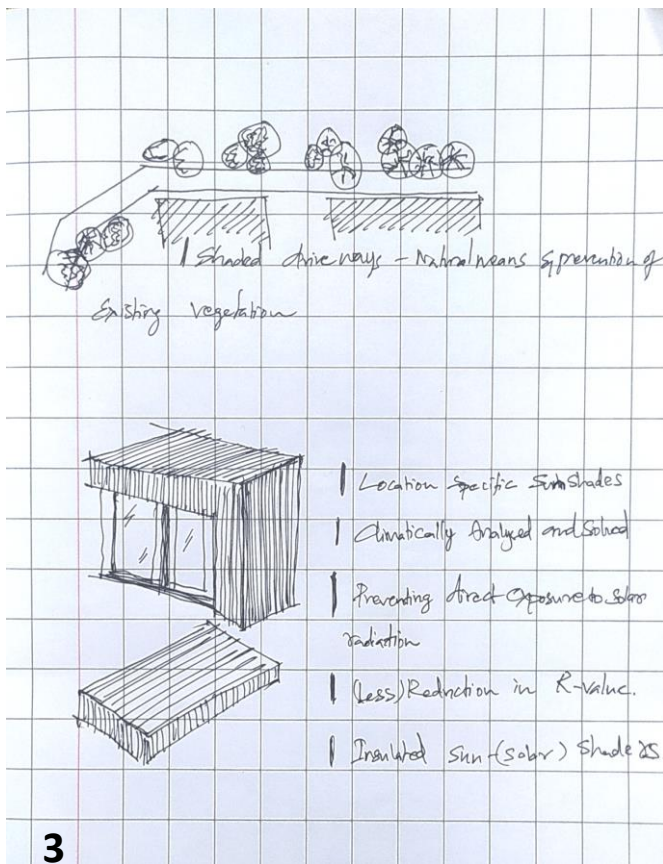 Shaded drive ways - Natural means & prevention of
Existing vegetation
Location Specific Sun Shades
Climatically Analysed and Solved
Preventing direct exposure to solar
radiation
(Less) Reduction in R-value.
Insulated Sun-(solar) Shades
3